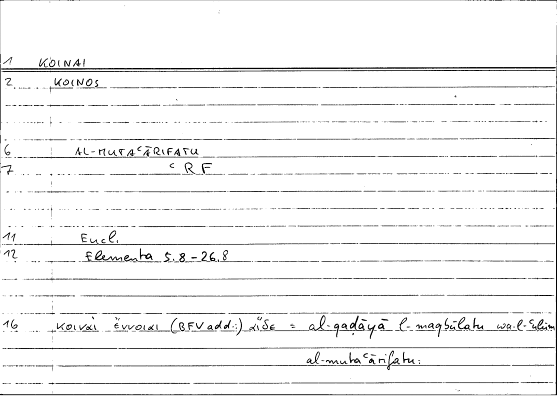 1 KOINAI
2 KOINOS
6 AL-MUTAʿĀRIFATU
7 ʿRF
11 Eucl.
12 Elementa 5.8-26.8
16 κοιναὶ ἔννοιαι (BFV add.:) αἵδε = al-qaḍāyā l-maqbūlatu wa-l-ʿulūm
al-mutaʿārifatu.